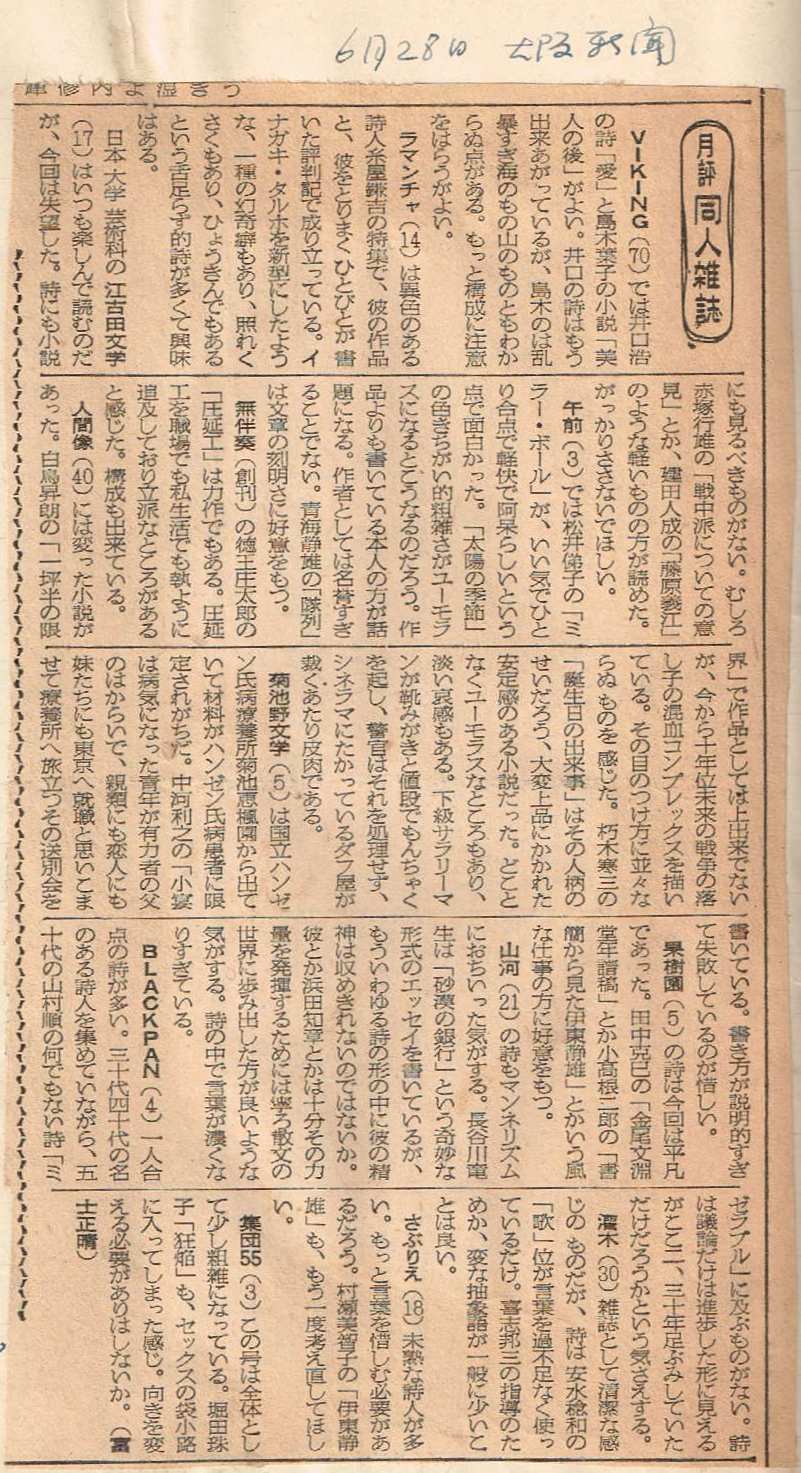 6月28日 大阪新聞
月評 同人雑誌
VIKING(70)では井口浩
の詩「愛」と島木葉子の小説「美
人の後」がよい。井口の詩はもう
出来あがっているが、島木のは乱
暴すぎ海のもの山のものともわか
らぬ点がある。もっと構成に注意
をはらうがよい。
ラマンチャ(14)は異色のある
詩人糸屋鎌吉の特集で、彼の作品
と、彼をとりまくひとびとが書
いた評判記で成り立っている。イ
ナガキ・タルホを新型にしたよう
な、一種の幻奇癖もあり、照れく
さくもあり、ひょうきんでもある
という舌足らず的詩が多くて興味
はある。
日本大学芸術科の江古田文学
(17)はいつも楽しんで読むのだ
が、今回は失望した。詩にも小説
にも見るべきものがない。むしろ
赤塚行雄の「戦中派についての意
見」とか、建田人成の「藤原義江」
のような軽いものの方が読めた。
がっかりさせないでほしい。
午前(3)では松井俤子の「ミ
ラー・ボール」が、いい気でひと
り合点で軽快で阿呆らしいという
点で面白かった。「太陽の季節」
の色きちがい的粗雑さがユーモラ
スになるとこうなるのだろう。作
品よりも書いている本人の方が話
題になる。作者としては名誉すぎ
ることでない。青海静雄の「隊列」
は文章の刻明さに好意をもつ。
無伴奏(創刊)の徳王庄太郎の
「圧延工」は力作でもある。圧延
工を職場でも私生活でも執ように
追及しており立派なところがある
と感じた。構成も出来ている。
人間像(40)には変った小説が
あった。白鳥昇朗の「一坪半の限
界」で作品としては上出来でない
が、今から十年位未来の戦争の落
し子の混血コンプレックスを描い
ている。その目のつけ方に並々な
らぬものを感じた。朽木寒三の
「誕生日の出来事」はその人柄の
せいだろう、大変上品にかかれた
安定感のある小説だった。どこと
なくユーモラスなところもあり、
淡い哀感もある。下級サラリーマ
ンが靴みがきと値段でもんちゃく
を起し、警官はそれを処理せず、
シネラマにたかっているダフ屋が
裁くあたり皮肉である。
菊池野文学(5)は国立ハンゼ
ン氏病療養所菊池恵楓園から出て
いて材料がハンゼン氏病患者に限
定されがちだ。中河利之の「小宴
は病気になった青年が有力者の父
のはからいで、親類にも恋人にも
妹たちにも東京へ就職と思いこま
せて療養所へ旅立つその送別会を
書いている。書き方が説明的すぎ
て失敗しているのが惜しい。
果樹園(5)の詩は今回は平凡
であった。田中克己の「金尾文淵
堂年譜稿」とか小高根二郎の「書
簡から見た伊東静雄」とかいう風
な仕事の方に好意をもつ。
山河(21)の詩もマンネリズム
におちいった気がする。長谷川竜
生は「砂漠の銀行」という奇妙な
形式のエッセイを書いているが、
もういわゆる詩の形の中に彼の精
神は収めきれないのではないか。
彼とか浜田知章とかは十分その力
量を発揮するためには寧ろ散文の
世界に歩み出した方が良いような
気がする。詩の中で言葉が濃くな
りすぎている。
BLACKPAN(4)一人合
点の詩が多い。三十代四十代の名
のある詩人を集めていながら、五
十代の山村順の何でもない詩「ミ
ゼラブル」に及ぶものがない。詩
は議論だけは進歩した形に見える
がここ二、三十年足ぶみしていた
だけだろうかという気さえする。
灌木(30)雑誌として清潔な感
じのものだが、詩は安水稔和の
「歌」位が言葉を過不足なく使っ
ているだけ。喜志邦三の指導のた
めか、変な抽象語が一般に少いこ
とは良い。
さぶりえ(18)未熟な詩人が多
い。もっと言葉を惜しむ必要があ
るだろう。村瀬美智子の「伊東静
雄」も、もう一度考え直してほし
い。
集団55(3)この号は全体とし
て少し粗雑になっている。堀田珠
子「狂焔」も、セックスの袋小路
に入ってしまった感じ。向きを変
える必要がありはしないか。(富
士正晴)